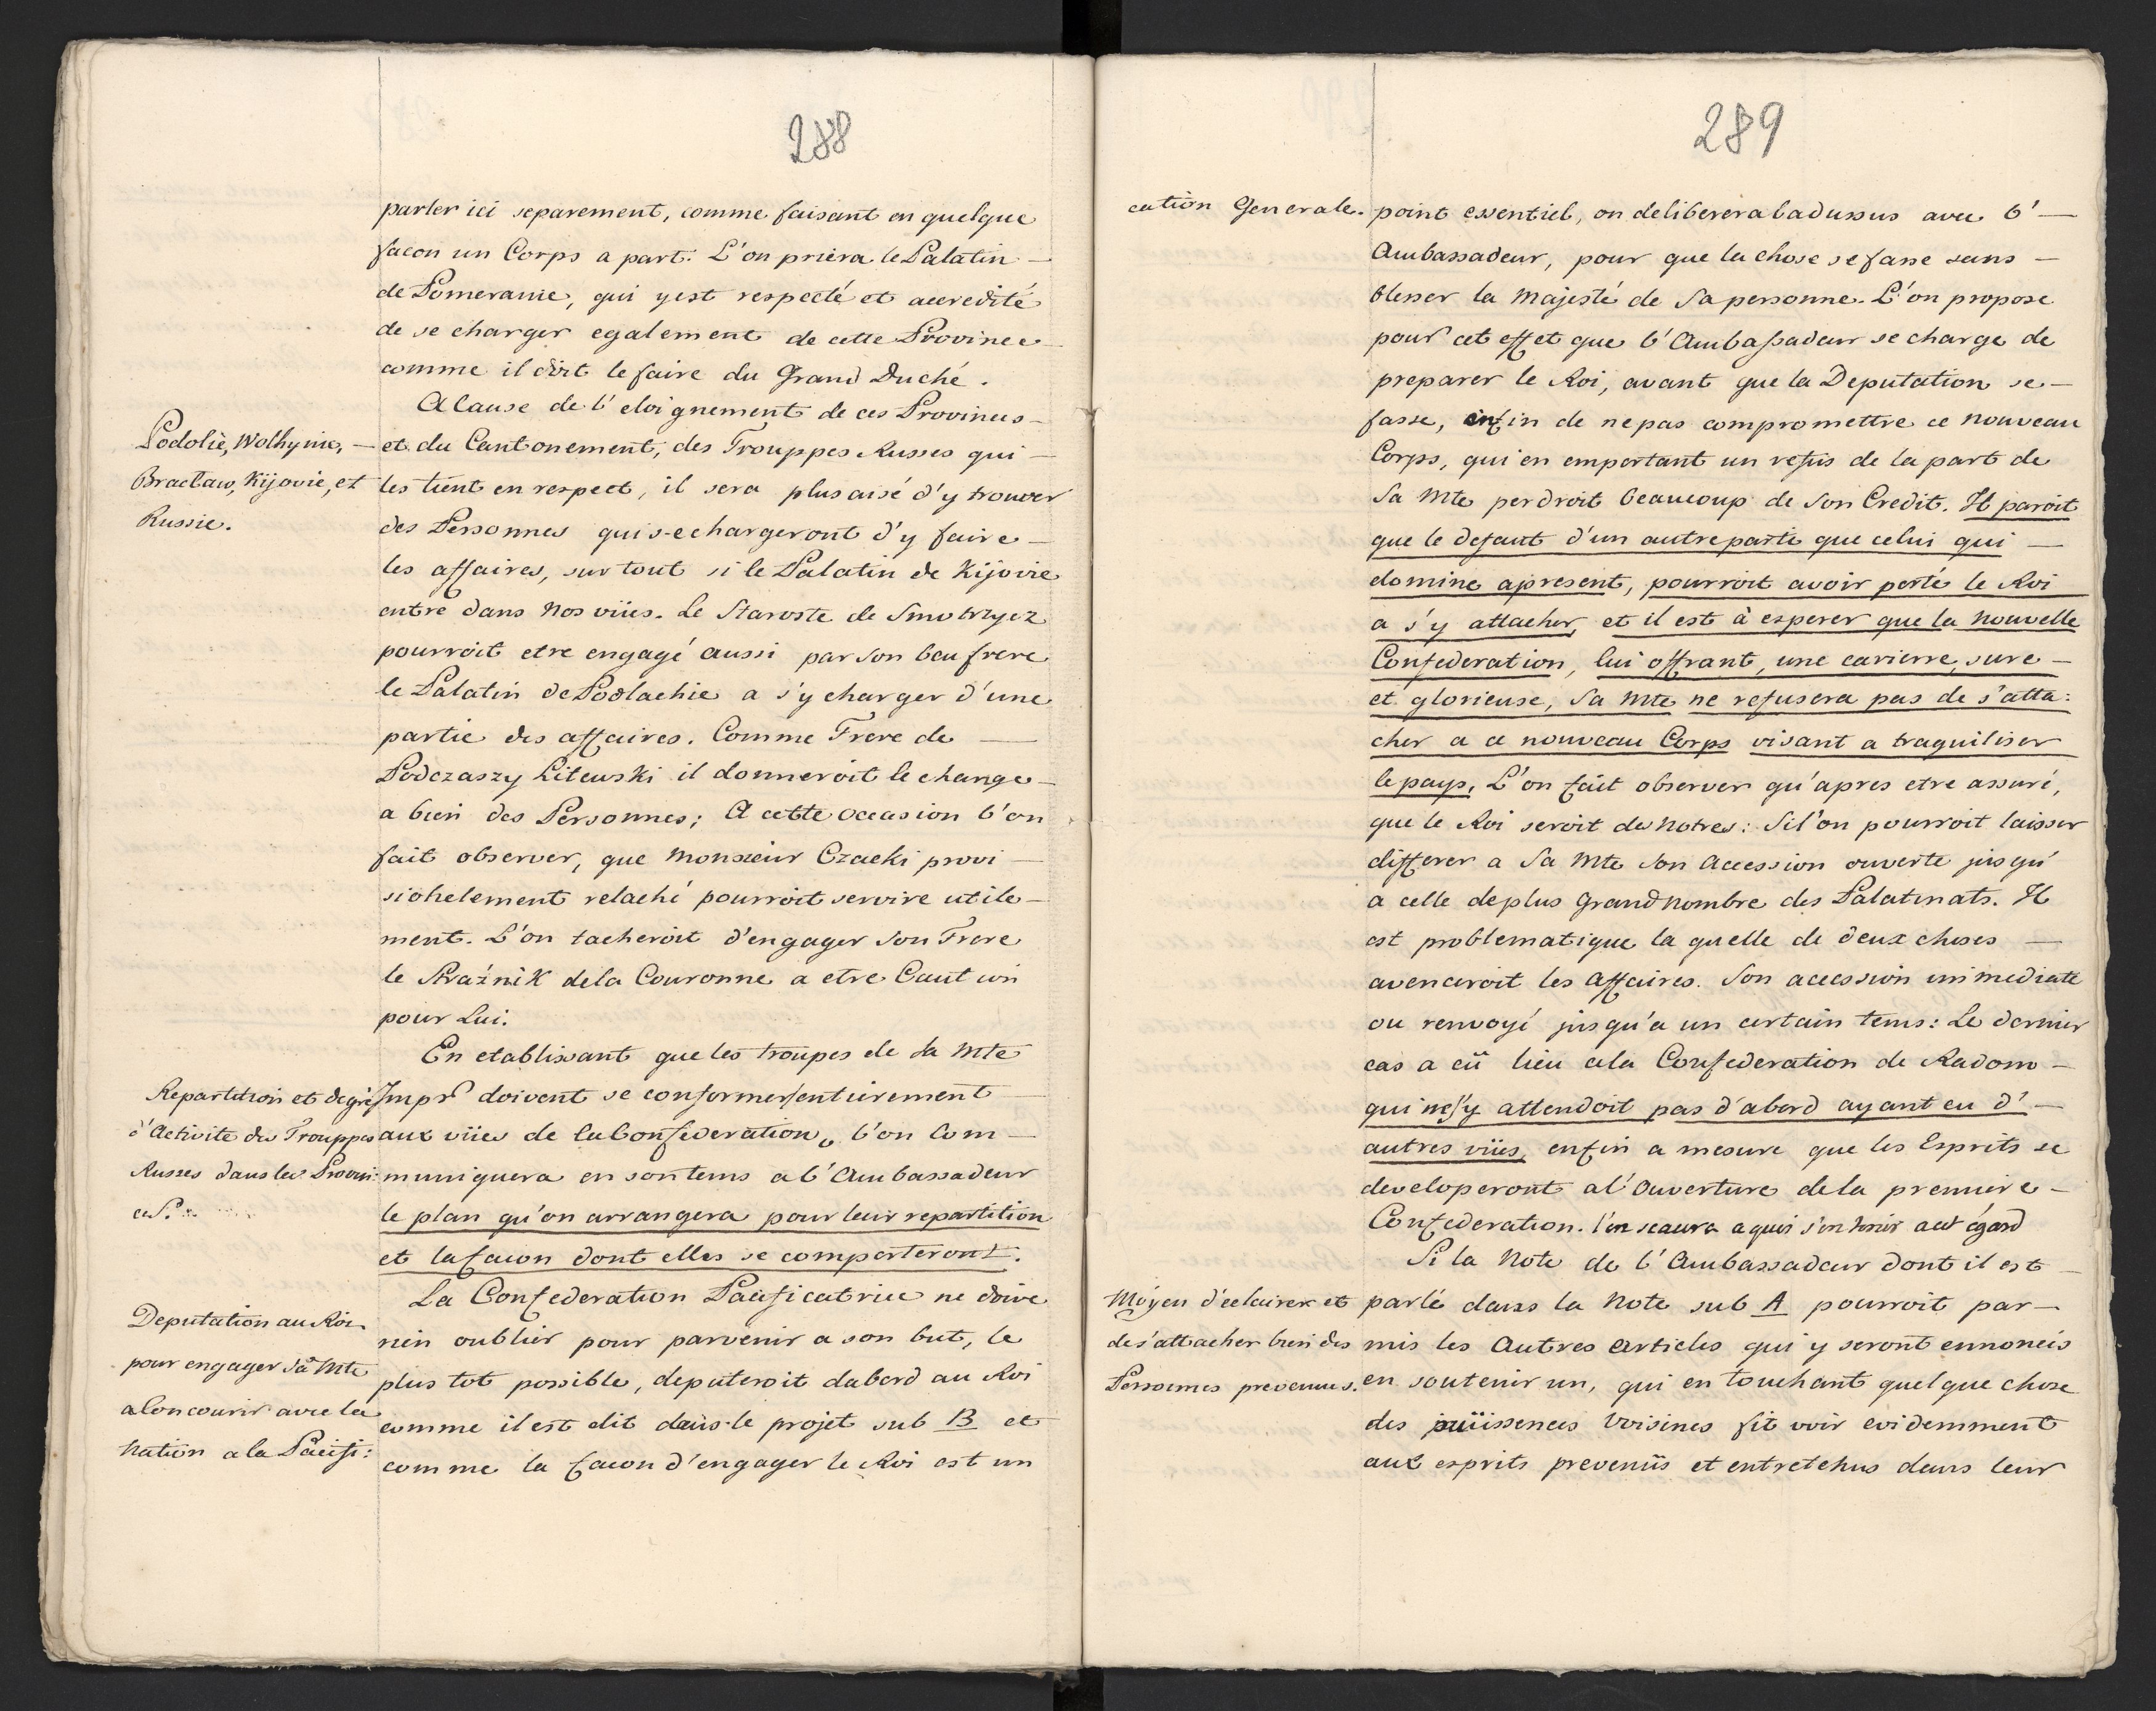 288
parler ici separement, comme faisant en quelque
facon un Corps a part. L'on priera le Palatin
de Pomeranie, qui y est respecté et accredité
de se charger egalement de cette Province
comme il doit le faire du Grand Duché.
A Cause de l'eloignement de ces Provinces
Podolie, Wolhynie,
et du Cantonement, des Trouppes Russes qui
Braclaw, Kijovie, et
les tient en respect, il sera plus aisé d'y trouver
Russie.
des Personnes qui se chargeront d'y faire
les affaires, sur tout si le Palatin de Kijovie
entre dans nos vües. Le Staroste de Smotrycz
pourroit etre engagé aussi par son beu frere
le Palatin de Podlachie a s'y charger d'une
partie des affaires. Comme Frere de
Podczaszy Litewski il donneroit le change
a bien des Personnes; A cette occasion l'on
fait observer, que Monsieur Czacki provi
sionelement relaché pourroit servire utile
ment. L'on tacheroit d'engager son Frere
le Straźnik de la Couronne a etre Caution
pour Lui.
En etablissant que les troupes de Sa Mte
Repartition et degré
Imprˡ doivent se conformer entierement
d'Activite des Trouppes
aux vües de la Confederation, l'on Com
Russes dans les Provin:
muniquera en son tems a l'Ambassadeur
ces.
le plan qu'on arrangera pour leur repartition
et la facon dont elles se comporteront.
La Confederation Pacificatrice ne doive
Deputation au Roi
rien oublier pour parvenir a son but, le
pour engager Sa Mte
plus tot possible, deputeroit dabord au Roi
a Concourir avec la
comme il est dit dans le projet sub B et
Nation a la Pacifi:
comme la facon d'engager le Roi est un
289
cation Generale.
point essentiel, on deliberera ladussus avec l'
Ambassadeur, pour que la chose se fasse sans
blesser la Majesté de Sa personne. L'on propose
pour cet effet que l'Ambassadeur se charge de
preparer le Roi, avant que la Deputation se
fasse, enfin de ne pas compromettre ce nouveau
Corps, qui en emportant un refus de la part de
Sa Mte perdroit beaucoup de Son Credit. Il paroit
que le defaut d'un autre partie que celui qui
domine apresent, pourroit avoir porté le Roi
a s'y attacher, et il est à esperer que la nouvelle
Confederation, lui offrant, une carierre, sure
et glorieuse, Sa Mte ne refusera pas de s'atta:
cher a ce nouveau Corps visant a traquiliser
le pays. L'on fait observer qu'apres etre assuré,
que le Roi seroit des notres: Si l'on pourroit laisser
differer a Sa Mte Son Accession ouverte jusqu'
a celle de plus Grand nombre des Palatinats. Il
est problematique la quelle de deux choses
avenceroit les Affaires. Son accession immediate
ou renvoyé jusqu'a un certain tems: Le dernier
cas a eü lieu a la Confederation de Radom
qui ne s'y attendoit pas d'abord ayant eu d'
autres vües, enfin a mesure que les Esprits se
developeront a l'ouverture de la premiere
Confederation. l'on sçaura a quoi s'en tenir a cet égard
Si la Note de l'Ambassadeur dont il est
Moyen d'eclairer et
parlé dans la Note sub A pourroit par
de s'attacher bien des
mis les Autres Articles qui y seront ennoncés
Personnes prevenues.
en soutenir un, qui en touchant quelque chose
des puiissences Voisines fit voir evidemment
aux esprits prevenüs et entretenus dans leur